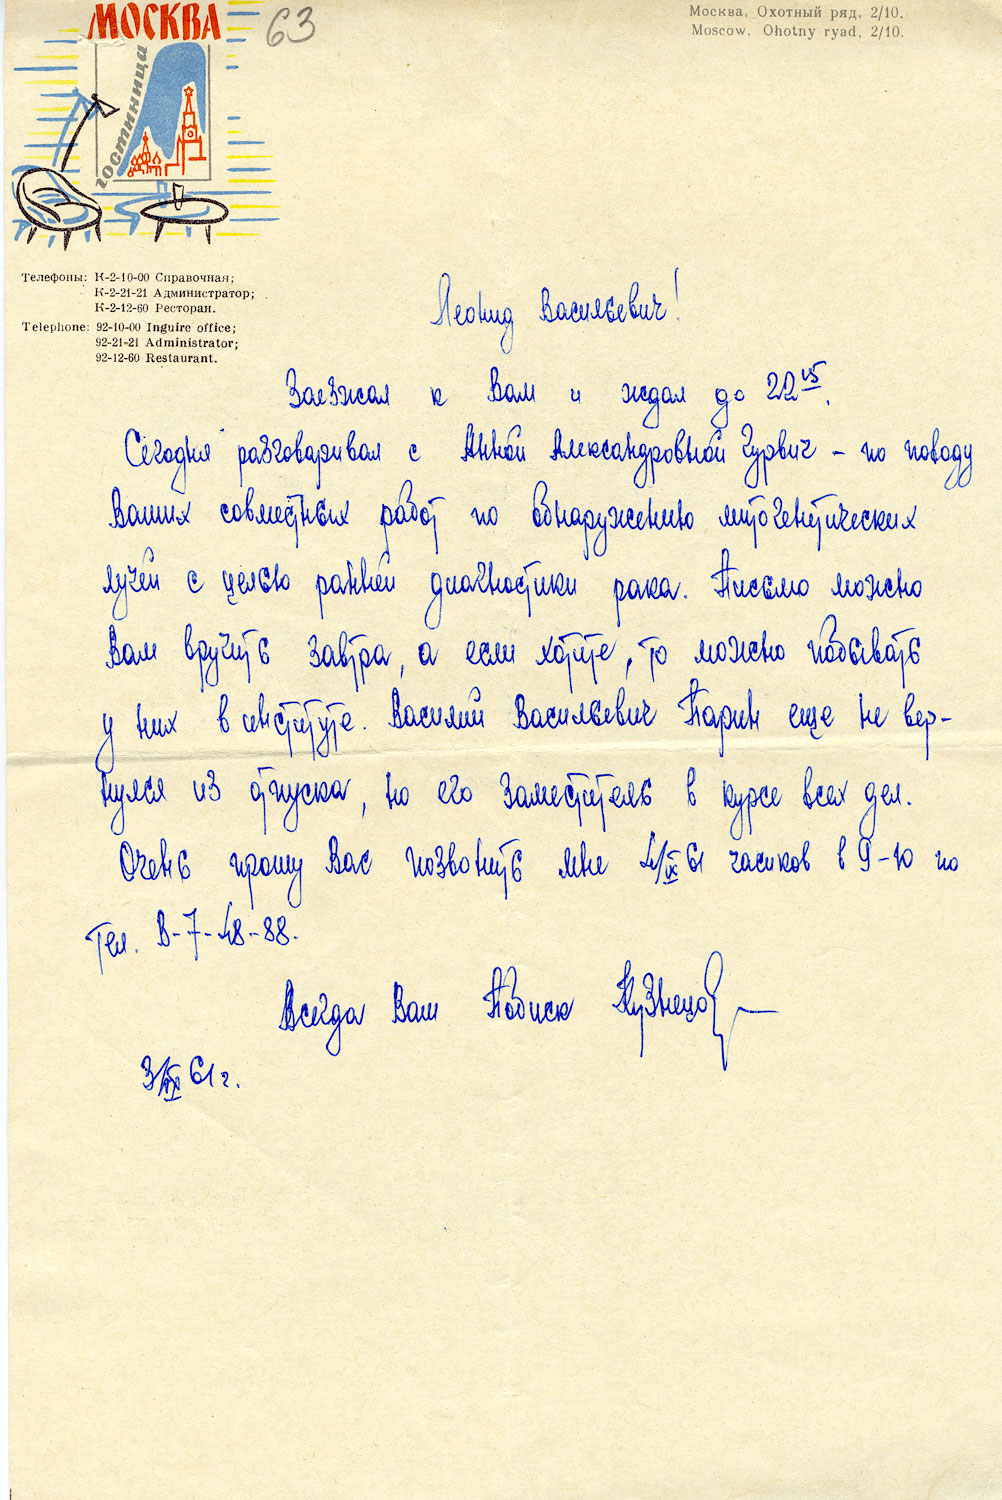 МОСКВА
гостиница
63
Москва, Охотный ряд, 2/10.
Moscow, Ohotny ryad, 2/10.
Телефоны: К-2-10-00 Справочная;
К-2-21-21 Администратор;
К-2-12-60 Ресторан.
Telephone: 92-10-00 Inguire office;
92-21-21 Administrator;
92-12-60 Restaurant.
Леонид Васильевич!
Заезжал к Вам и ждал до 22 15.
Сегодня разговаривал с Анной Александровной Гурвич – по поводу
Ваших совместных работ по обнаружению митогенетических
лучей с целью ранней диагностики рака. Письмо можно
Вам вручить завтра, а если хотите, то можно побывать
у них в институте. Василий Васильевич Парин еще не вер-
нулся из отпуска, но его заместитель в курсе всех дел.
Очень прошу Вас позвонить мне 4/IX 61 часиков в 9-10 по
тел. В-7-48-88.
Всегда Ваш Побиск Кузнецов
3/IX 61 г.